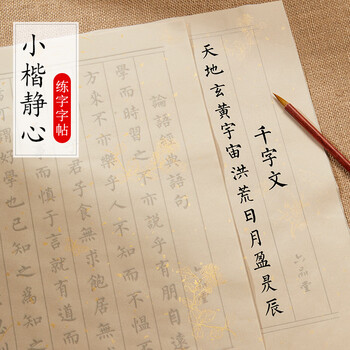 小楷静心
练字字帖
千字文
天地玄黄宇宙洪荒日月盈昃辰
六品堂
論語經典語句
學而時習之不亦說乎有朋自遠
方來不亦樂乎人不知而不慍不
君子食無求飽居無
慎于言就有道而
好學也已知之為知